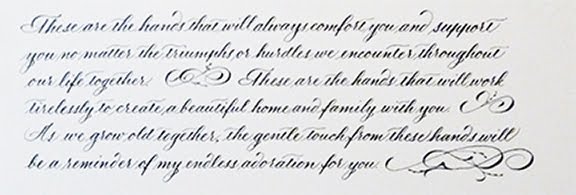 These are the hands that will always comfort you and support
you no matter the triumphs or hurdles we encounter throughout
our life together. These are the hands that will work
tirelessly to create a beautiful home and family with you.
As we grow old together, the gentle touch from these hands will
be a reminder of my endless adoration for you.